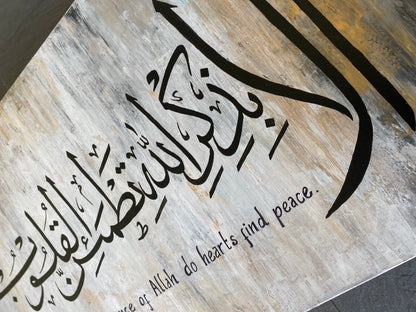 ألا بذكر الله تطمئن القلوب
of Allah do hearts find peace.